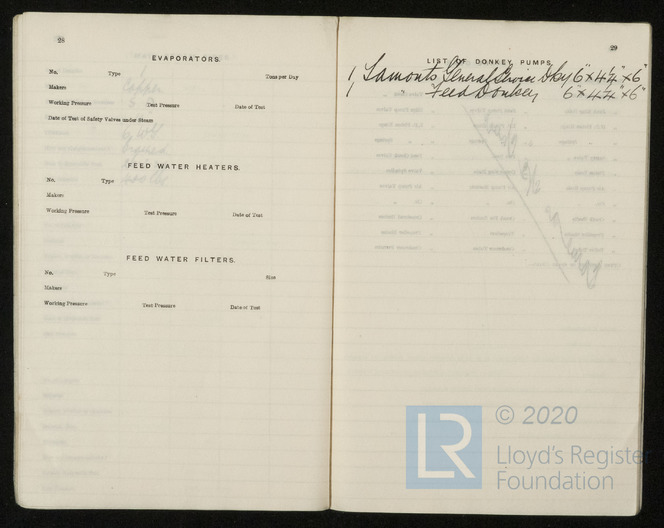 28
EVAPORATORS.
No. Type Tons per Day
Makers
Working Pressure Test Pressure Date of Test
Date of Test of Safety Valves under Steam
FEED WATER HEATERS.
No. Type
Makers
Working Pressure Test Pressure Date of Test
FEED WATER FILTERS.
No. Type Size
Makers
Working Pressure Test Pressure Date of Test
29
LIST OF DONKEY PUMPS.
1, Lamonts General Service Dky 6" × 4½" × 6"
1, " Feed Donkey 6" × 4½" × 6"
LR
© 2020
Lloyd's Register
Foundation